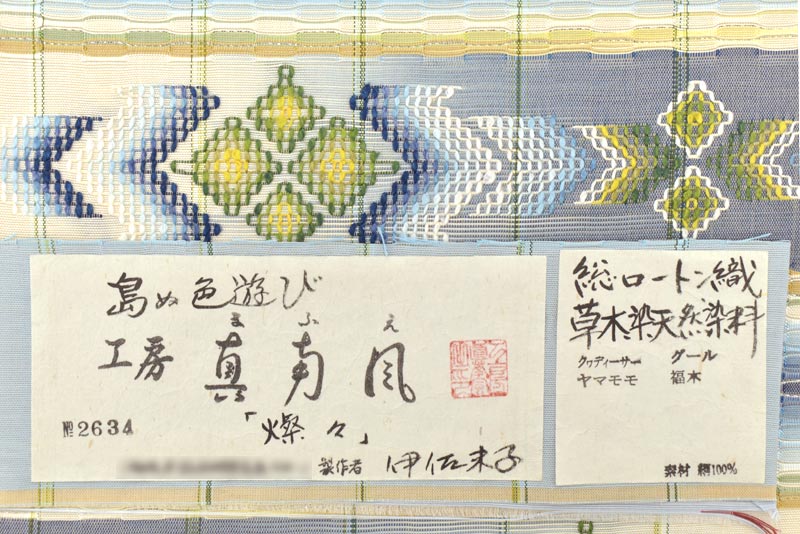 島ぬ色遊び
工房 真南風
まふえ
№2634
「燦々」
製作者 伊佐末子
総ロートン織
草木染天然染料
クヮディーサー グール
ヤマモモ 福木
素材 絹100%